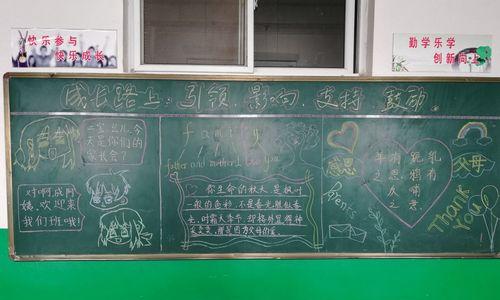 快乐参与
快乐成长
勤学乐学
创新向上
成长路上：引领.影响.支持.鼓励.
三宝贝儿,今
天是你们的
家长会？
对啊成阿
姨,欢迎来
我们班哦!
family
father and mother I love you
你生命的秋天,是枫叶
一般的色彩,不是春光胜似春
光,时霜天季节,却格外显精神
感恩
羊有跪乳
之恩鸦有
反哺
之意.
父母
THANK
YOU